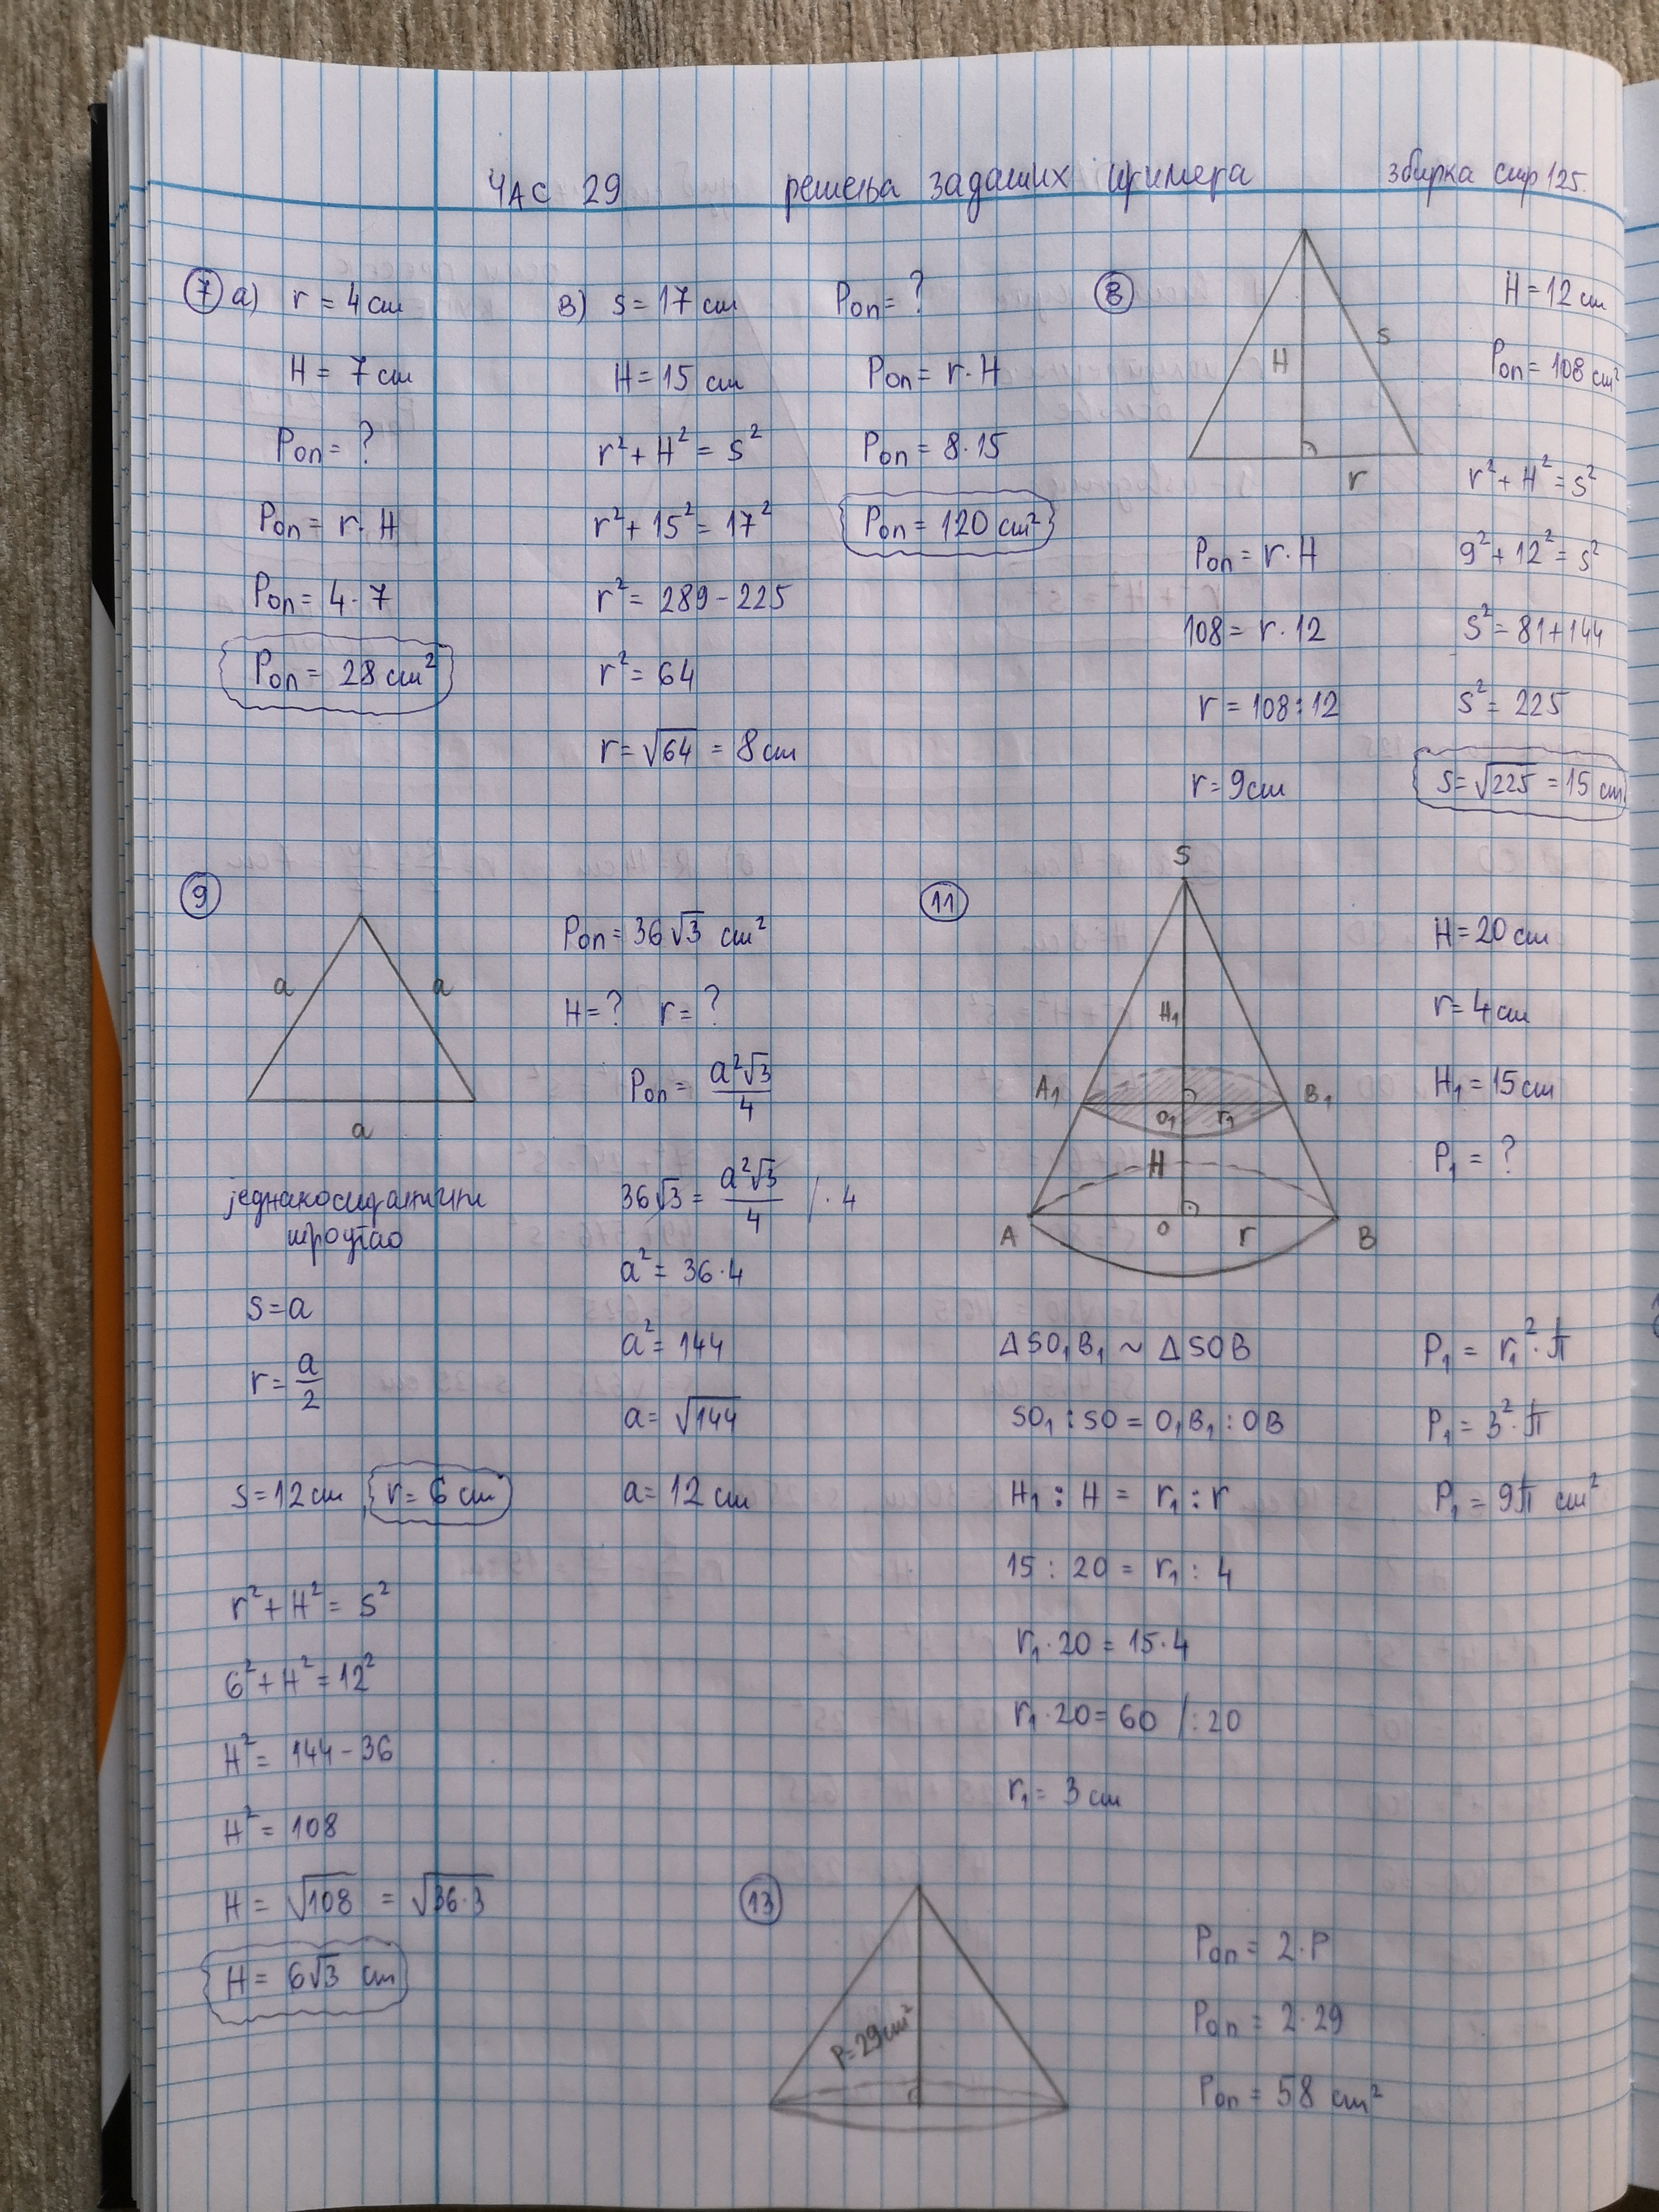 ЧАС 29 решења задатих примера збирка стр 125.
7 а) r = 4 cm
H = 7 cm
Pоп = ?
Pоп = r · H
Pоп = 4 · 7
Pоп = 28 cm²
в) s = 17 cm
H = 15 cm
r² + H² = s²
r² + 15² = 17²
r² = 289 - 225
r² = 64
r = √64 = 8 cm
Pоп = ?
Pоп = r · H
Pоп = 8 · 15
Pоп = 120 cm²
8
H
s
r
H = 12 cm
Pоп = 108 cm²
Pоп = r · H
108 = r · 12
r = 108 : 12
r = 9 cm
r² + H² = s²
9² + 12² = s²
s² = 81 + 144
s² = 225
s = √225 = 15 cm
9
a a
a
једнакостранични
троугао
s = a
r = a/2
s = 12 cm r = 6 cm
r² + H² = s²
6² + H² = 12²
H² = 144 - 36
H² = 108
H = √108 = √36·3
H = 6√3 cm
Pоп = 36√3 cm²
H = ? r = ?
Pоп = a²√3/4
36√3 = a²√3/4 / · 4
a² = 36 · 4
a² = 144
a = √144
a = 12 cm
11
S
H₁
A₁ B₁
O₁ r₁
H
A O r B
H = 20 cm
r = 4 cm
H₁ = 15 cm
P₁ = ?
Δ SO₁B₁ ~ Δ SOB
SO₁ : SO = O₁B₁ : OB
H₁ : H = r₁ : r
15 : 20 = r₁ : 4
r₁ · 20 = 15 · 4
r₁ · 20 = 60 / : 20
r₁ = 3 cm
P₁ = r₁² · π
P₁ = 3² · π
P₁ = 9π cm²
13
P = 29 cm²
Pоп = 2 · P
Pоп = 2 · 29
Pоп = 58 cm²